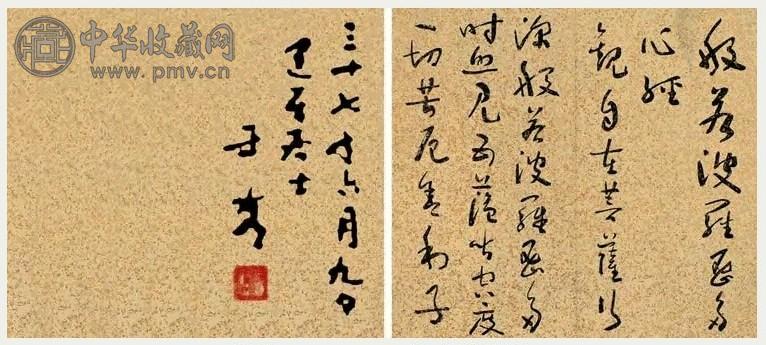 般若波羅蜜多
心經
觀自在菩薩行
深般若波羅蜜多
時照見五蘊皆空度
一切苦厄舍利子
三十七年六月九日
居士
于
中华收藏网
www.pmv.cn